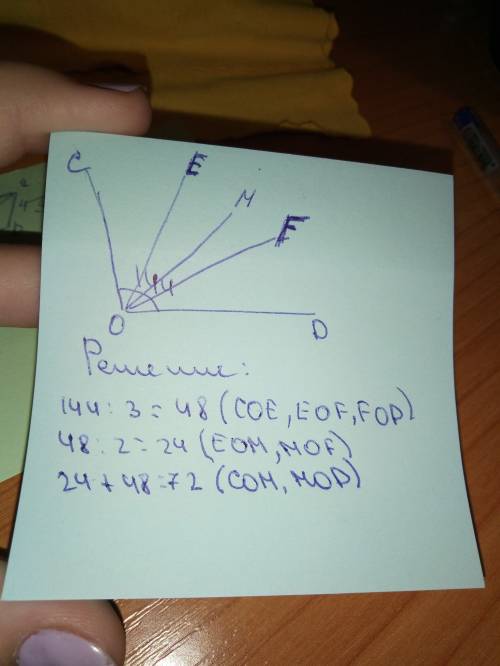 C E M F
144
O D
Решение:
144 : 3 = 48 (COE, EOF, FOD)
48 : 2 = 24 (EOM, MOF)
24 + 48 = 72 (COM, MOD)